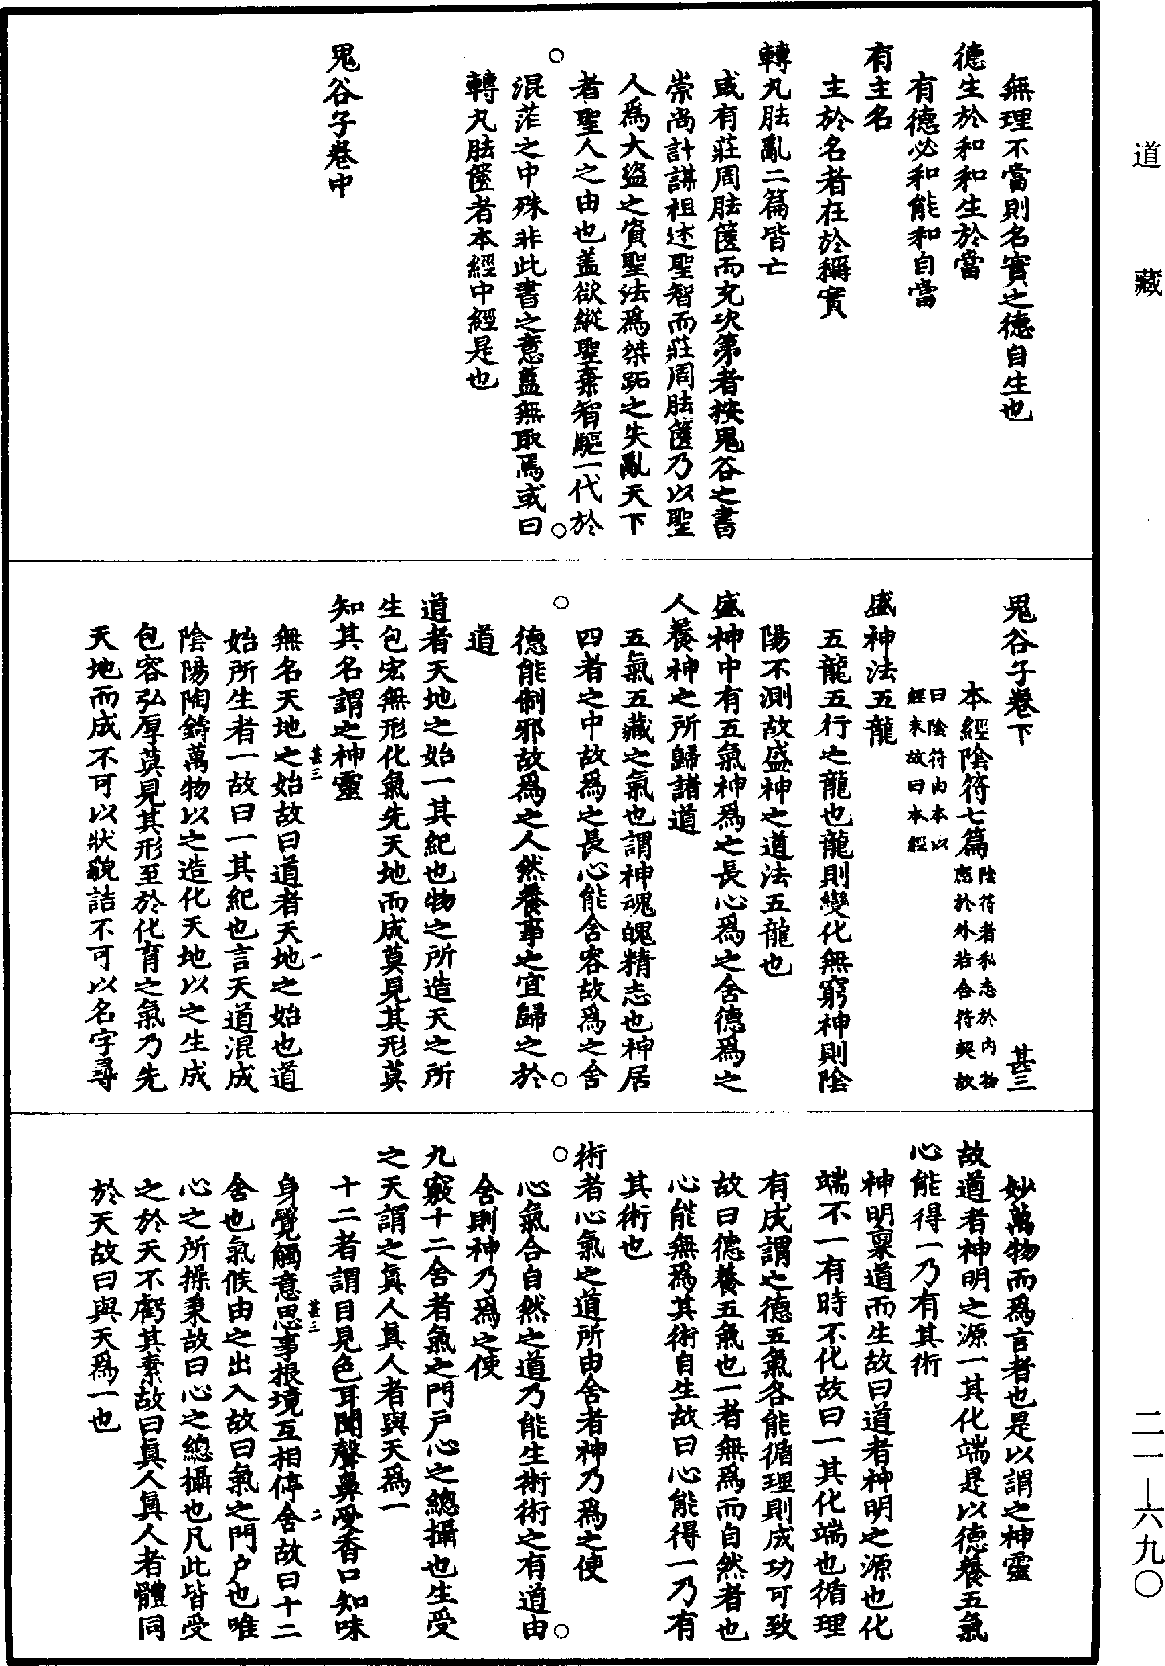 道藏
無理不當則名實之德自生也
德生於和和生於當
有德必和能和自當
有主名
主於名者在於稱實
轉丸胠亂二篇皆亡
或有莊周胠篋而充次第者按鬼谷之書
崇尚計謀祖述聖智而莊周胠篋乃以聖
人爲大盜之資聖法爲桀跖之失亂天下
者聖人之由也蓋欲縱聖棄智驅一代於
混茫之中殊非此書之意蓋無取焉或曰
轉丸胠篋者本經中經是也
鬼谷子卷中
鬼谷子卷下 甚三
本經陰符七篇
陰符者私志於內物
應於外若合符契故
曰陰符由本以
經末故曰本經
盛神法五龍
五龍五行之龍也龍則變化無窮神則陰
陽不測故盛神之道法五龍也
盛神中有五氣神爲之長心爲之舍德爲之
人養神之所歸諸道
五氣五藏之氣也謂神魂魄精志也神居
四者之中故爲之長心能舍容故爲之舍
德能制邪故爲之人然養事之宜歸之於
道
道者天地之始一其紀也物之所造天之所
生包宏無形化氣先天地而成莫見其形莫
知其名謂之神靈
無名天地之始故曰道者天地之始也道
甚三 一
始所生者一故曰一其紀也言天道混成
陰陽陶鑄萬物以之造化天地以之生成
包容弘厚莫見其形至於化育之氣乃先
天地而成不可以狀貌詰不可以名字尋
妙萬物而爲言者也是以謂之神靈
故道者神明之源一其化端是以德養五氣
心能得一乃有其術
神明稟道而生故曰道者神明之源也化
端不一有時不化故曰一其化端也循理
有成謂之德五氣各能循理則成功可致
故曰德養五氣也一者無爲而自然者也
心能無爲其術自生故曰心能得一乃有
其術也
術者心氣之道所由舍者神乃爲之使
心氣合自然之道乃能生術術之有道由
舍則神乃爲之使
九竅十二舍者氣之門戶心之總攝也生受
之天謂之眞人眞人者與天爲一
十二者謂目見色耳聞聲鼻受香口知味
身覺觸意思事根境互相停舍故曰十二
甚三 二
舍也氣候由之出入故曰氣之門戶也唯
心之所操秉故曰心之總攝也凡此皆受
之於天不虧其素故曰眞人眞人者體同
於天故曰與天爲一也
二一—六九〇